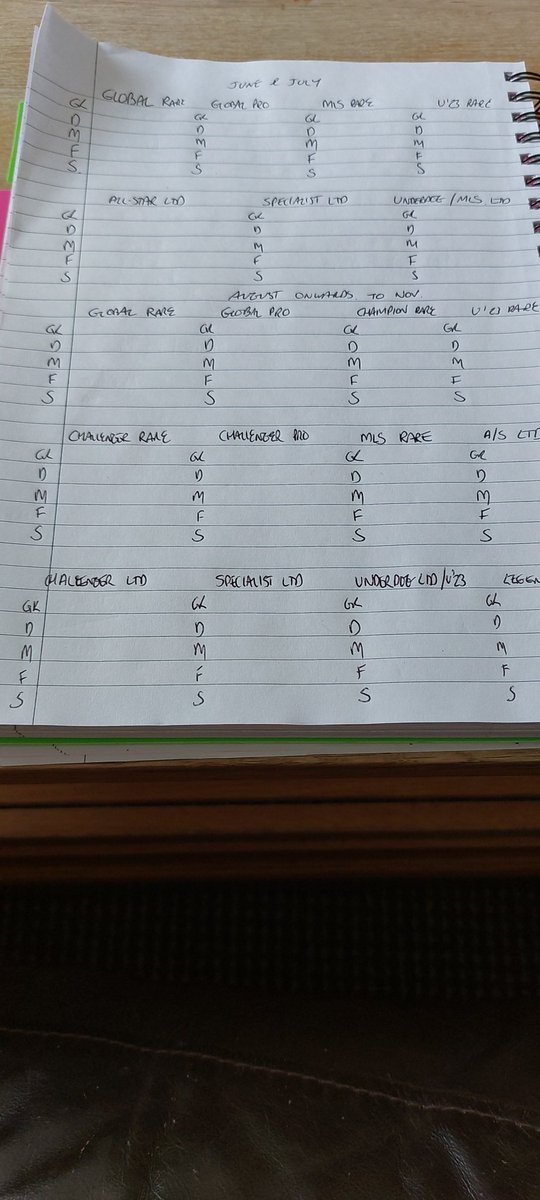 JUNE & JULY
GLOBAL RARE GLOBAL PRO MLS RARE U'23 RARE
GK GK GK GK
D D D D
M M M M
F F F F
S S S S
ALL-STAR LTD SPECIALIST LTD UNDERDOG/MLS LTD
GK GK GK
D D D
M M M
F F F
S S S
AUGUST ONWARDS TO NOV.
GLOBAL RARE GLOBAL PRO CHAMPION RARE U'23 RARE
GK GK GK GK
D D D D
M M M M
F F F F
S S S S
CHALLENGER RARE CHALLENGER PRO MLS RARE A/S LTD
GK GK GK GK
D D D D
M M M M
F F F F
S S S S
CHALLENGER LTD SPECIALIST LTD UNDERDOG LTD/U'23 LEGEN
GK GK GK GK
D D D D
M M M M
F F F F
S S S S